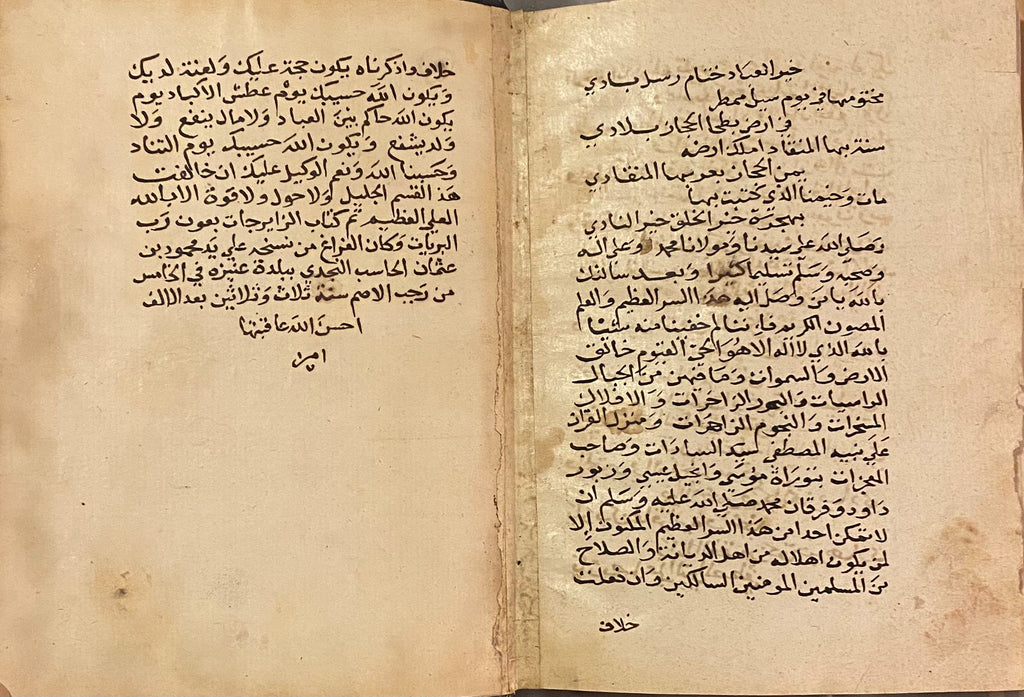 خير العباد ختام رسل بادي
مختومها في يوم سيل ممطر
في ارض بطحا الحجاز بلادي
ستة بها المنقاد املك ارضه
يمن الحجاز بعربها المنقادي
مات وحينا الذي كتبت بها
بهجرة خير الخلق خير النادي
وصلى الله على سيدنا ومولانا محمد وعلى اله
وصحبه وسلم تسليما كثيرا وبعد سالتك
بالله يا من وصل اليه هذا السر العظيم والعلم
المصون الكريم
بالله الذي لا اله الا هو الحي القيوم خالق
الارض والسموات وما فيهن من الجبال
الراسيات والبحور الزاخرات والافلاك
المسخرات والنجوم الزاهرات ومنزل القران
على نبيه المصطفى سيد السادات وصاحب
المعجزات بتوراة موسى وانجيل عيسى وزبور
داود وفرقان محمد صلى الله عليه وسلم ان
لا تمكن احدا من هذا السر العظيم المكنون الا
لمن يكون اهلا له من اهل الديانة والصلاح
من المسلمين المومنين السالكين وان فعلت
خلاف
خلاف واذكرناه يكون حجة عليك ولعنة لديك
ويكون الله حسيبك يوم عطش الاكباد يوم
يكون الله حاكم بين العباد ولا مال ينفع ولا
ولد يشفع ويكون الله حسيبك يوم التناد
وحسبنا الله ونعم الوكيل عليك ان خالفت
هذ القسم الجليل ولا حول ولا قوة الا بالله
العلي العظيم تم كتاب الزايرجات بعون رب
البريات وكان الفراغ من نسخه على يد محمود بن
عثمان الحاسب النجدي ببلدة عنيزه في الخامس
من رجب الاصم سنة ثلاث وثلاثين بعد الالف
احسن الله عاقبتها
امين